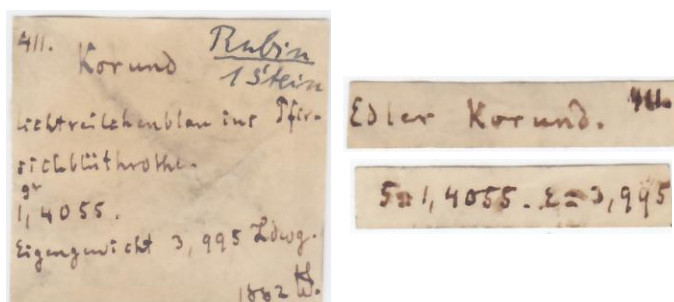 411.
Korund
Rubin
1 Stein
Lichtveilchenblau ins Pfir-
sichblüthrothe.
gr
1,4055.
Eigengewicht 3,995 Ldwg.
1882
Edler Korund. 411.
S=1,4055. ε=3,995